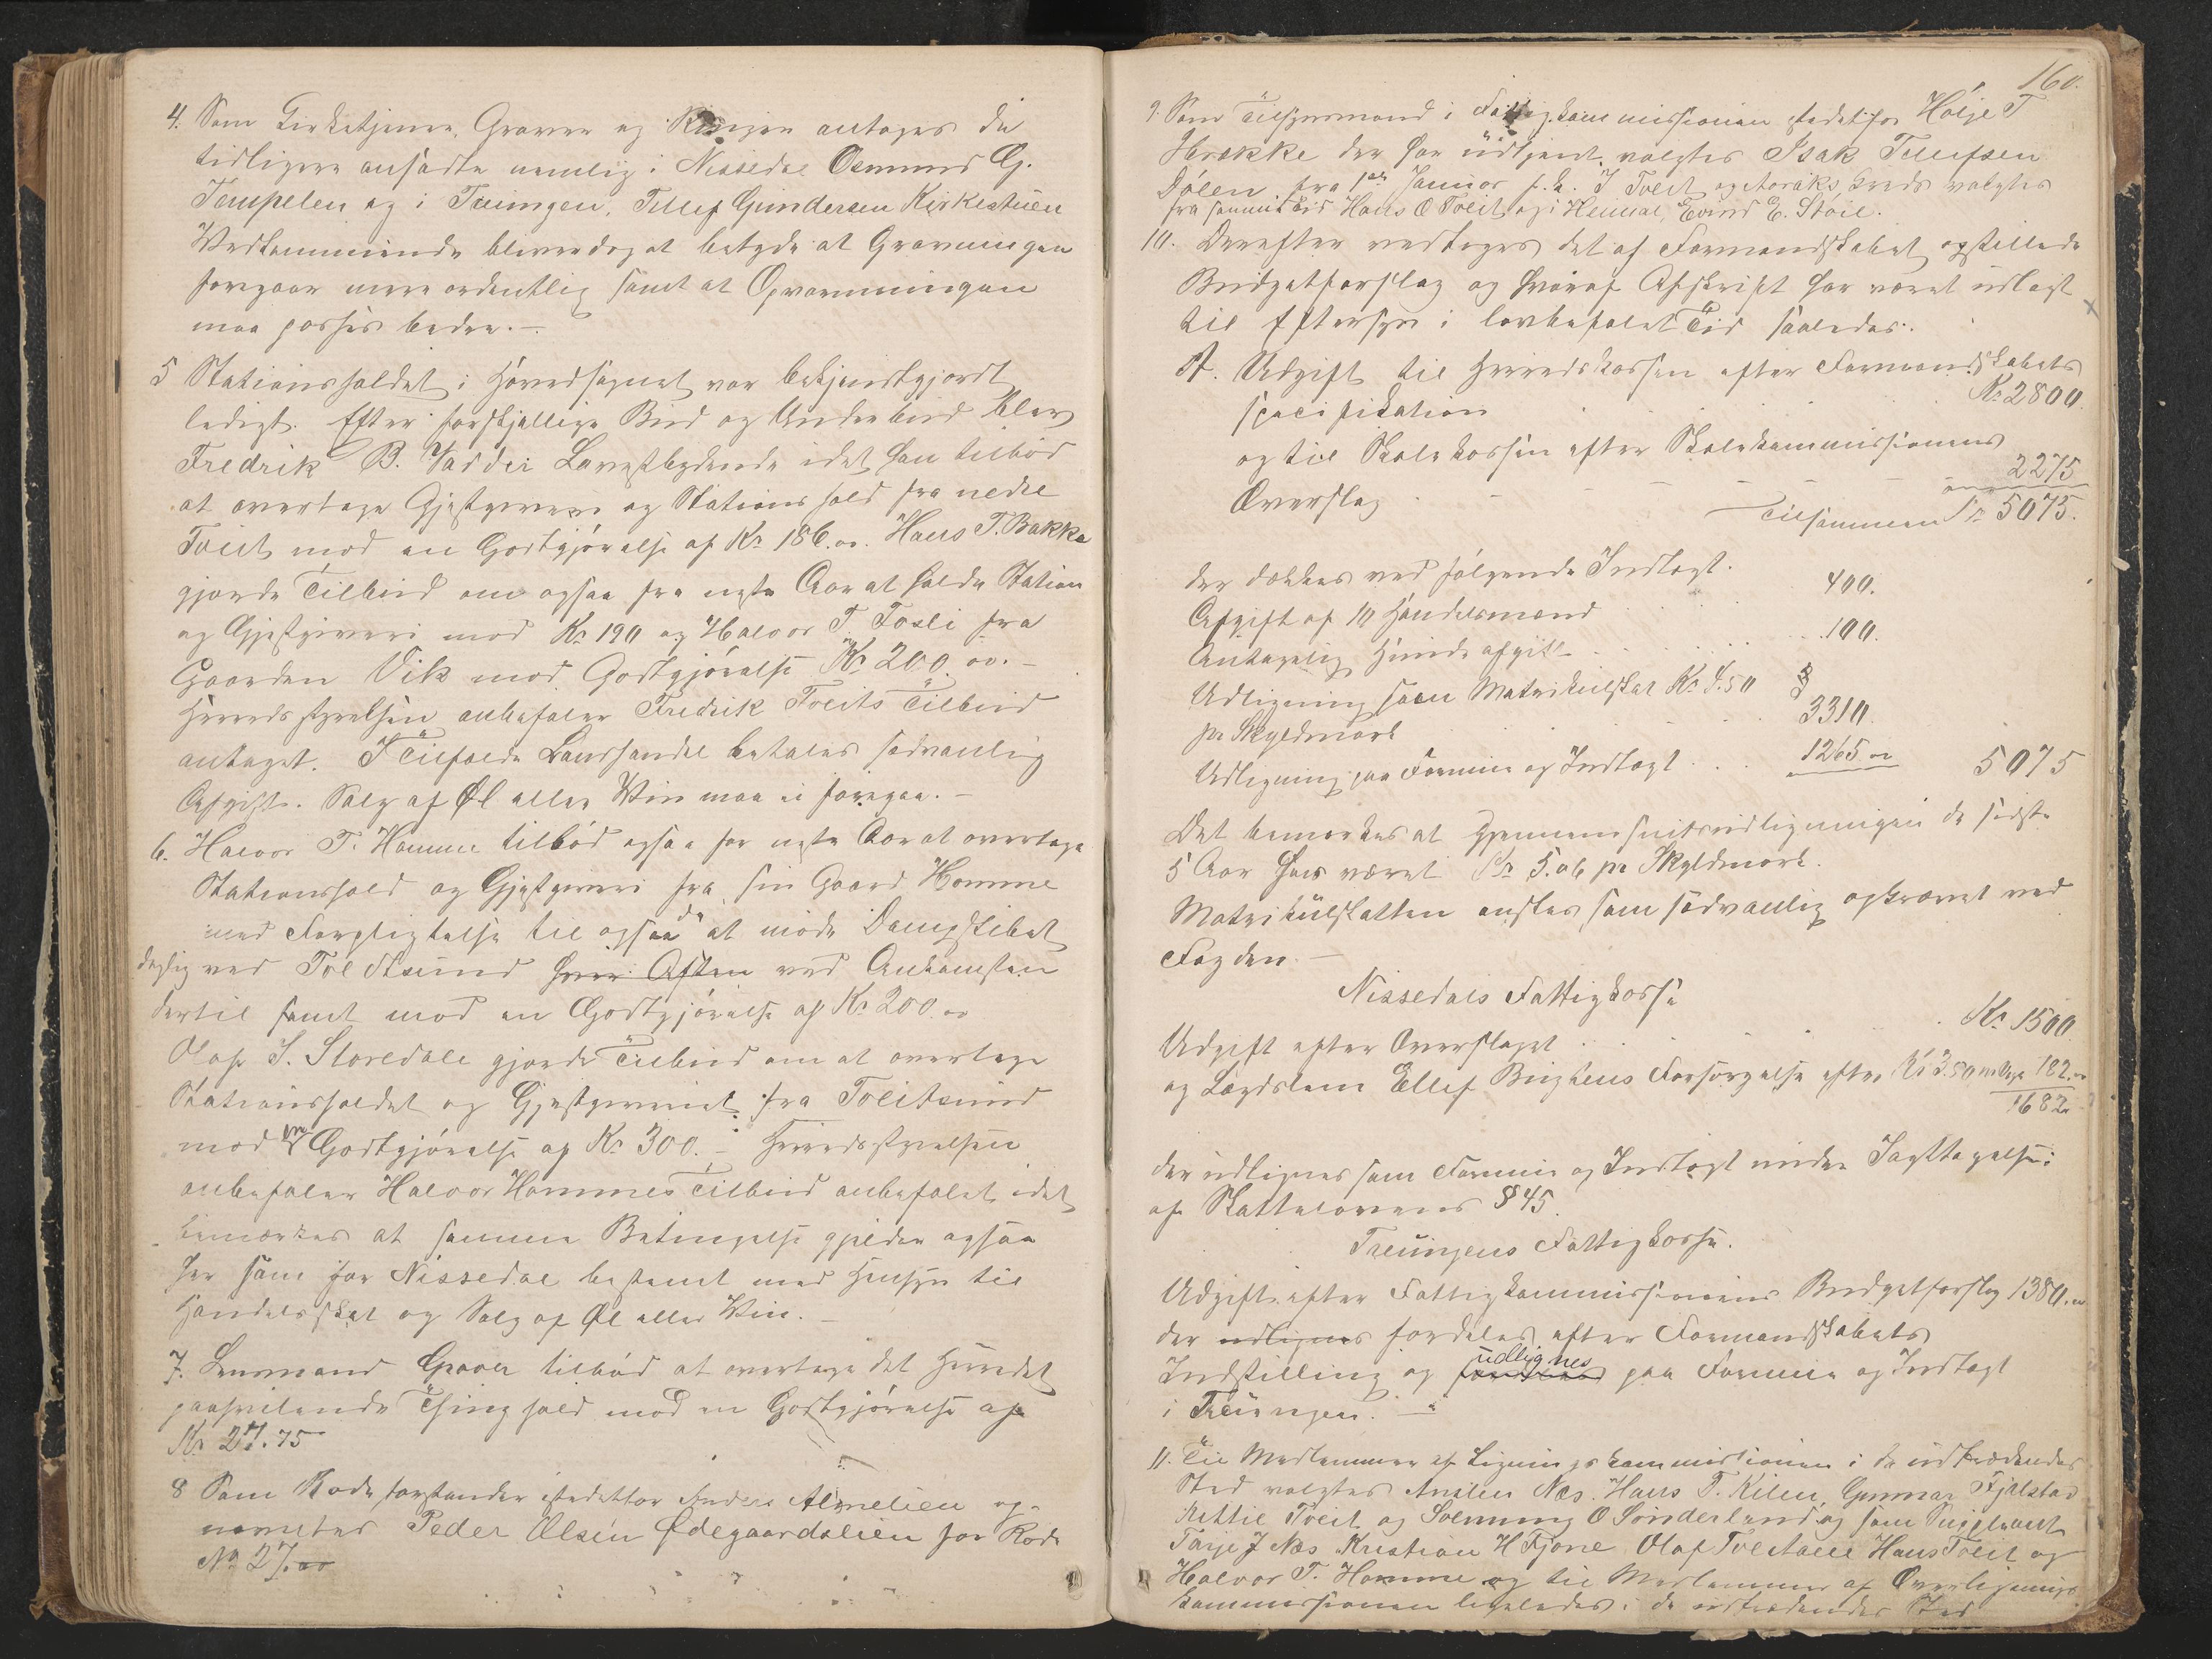 4. Som Kirketjener, Graver og Ringer antoges de
tidligere ansadte nemlig i Nissedal Osmund G.
Tempelen og i Treungen, Tellef Gundersen Kirkestuen
Vedkommende bliver dog at betyde at Gravningen
foregaar mere ordentlig samt at Opvarmningen
maa passes bedre. -
5 Stationsholdet i Hovedsognet var bekjendtgjordt
ledigt. Efter forskjellige Bud og Underbud blev
Fredrik B. Lavestbydende idet han tilbød
at overtage Gjestgiveri og Stationshold fra nedre
Tveit mod en Godtgjørelse af Kr 186.oo. Hans T. Bakka
gjorde Tilbud om ogsaa fra neste Aar at holde Station
og Gjestgiveri mod Kr 190 og Halvor T Tosli fra
Gaarden Vik mod Godtgjørelse Kr 200.oo. -
Herredsstyrelsen anbefaler Fredrik Tveits Tilbud
antaget. I Tilfelde Landhandel betales sedvanlig
Afgift. Salg af Øl eller Vin maa ei foregaa. -
6. Halvor T. Homme tilbød ogsaa for neste Aar at overtage
Stationshold og Gjestgiveri fra sin Gaard Homme
med Forpligtelse til ogsaa da at møde Dampskibet
daglig ved Tveitsund hver Aften ved Ankomsten
dertil samt mod en Godtgjørelse af Kr 200.oo
Olaf S. Storedale gjorde Tilbud om at overtage
Stationsholdet og Gjestgiveriet fra Tveitsund
mod en Godtgjørelse af Kr 300. - Herredsstyrelsen
anbefaler Halvor Hommes Tilbud anbefalet idet
bemærkes at samme Betingelse gjelder ogsaa
her som for Nissedal bestemt med Hensyn til
Handelsskat og Salg af Øl eller Vin. -
7. Lensmand Graver tilbød at overtage det Herredet
paahvilende Thinghold mod en Godtgjørelse af
Kr 27.75
8 Som Rodeforstander istedetfor Anders op-
nevntes Peder Olsen Ødegaardslien for Rode
No 27.oo
160.
9. Som Tilsynsmand i Fattigkommissionen istedetfor Høljе T
der har udtjent, valgtes Isak Tellefsen
Dølen fra 1ste Januar f.A. I Tveit og Kreds valgtes
fra samme Tid Hans O Tveit og i Eivind E. Støil.
10. Derefter vedtoges det af Formandskabet opstillede
Budgetforslag og hvoraf Afskrift har været udlagt
til Eftersyn i lovbefalet Tid saaledes:
A. Udgift til Herredskassen efter Formandskabets
specifikation Kr 2800.
og til Skolekassen efter Skolekommissionens
Overslag - - - - - 2275
Tilsammen Kr 5075.
der dækkes ved følgende Indtægt.
Afgift af 10 Handelsmænd 400.
Antagelig Hundeafgift 100.
Udligning som Matrikulskat Kr
pr Skyldmark 3310.
Udligning paa Formue og Indtægt 1265.oo 5075
Det bemerkes at Gjennemsnitsudligningen de sidste
5 Aar har været Kr 5.06 pr Skyldmark.
Matrikulskatten ønskes som sædvanlig opkrævet ved
Fogden. -
Nissedals Fattigkasse
Udgift efter Overslaget Kr 1500
og Lægdslem Ellef Forsørgelse efter Kr 3.50 182.oo
1682
der udlignes som Formue og Indtægt under Iagttagelse
af Skattelovens § 45.
Treungens Fattigkasse.
Udgift efter Fattigkommissionens Budgetforslag 1380.oo
der udlignes fordeles efter Formandskabets
Indstilling og udlignes paa Formue og Indtægt
i Treungen. -
11. Til Medlemmer af Ligningskommissionen i de udtrædendes
Sted valgtes Næs. Hans T. Kilen, Gunnar Fjalstad
Tveit og O Sønderland og som Suppleant
Tarje J Næs Kristian H Fjone Olaf Hans Tveit og
Halvor T. Homme og til Medlemmer af Overlignings
kommissionen ligeledes i de udtrædendes Sted